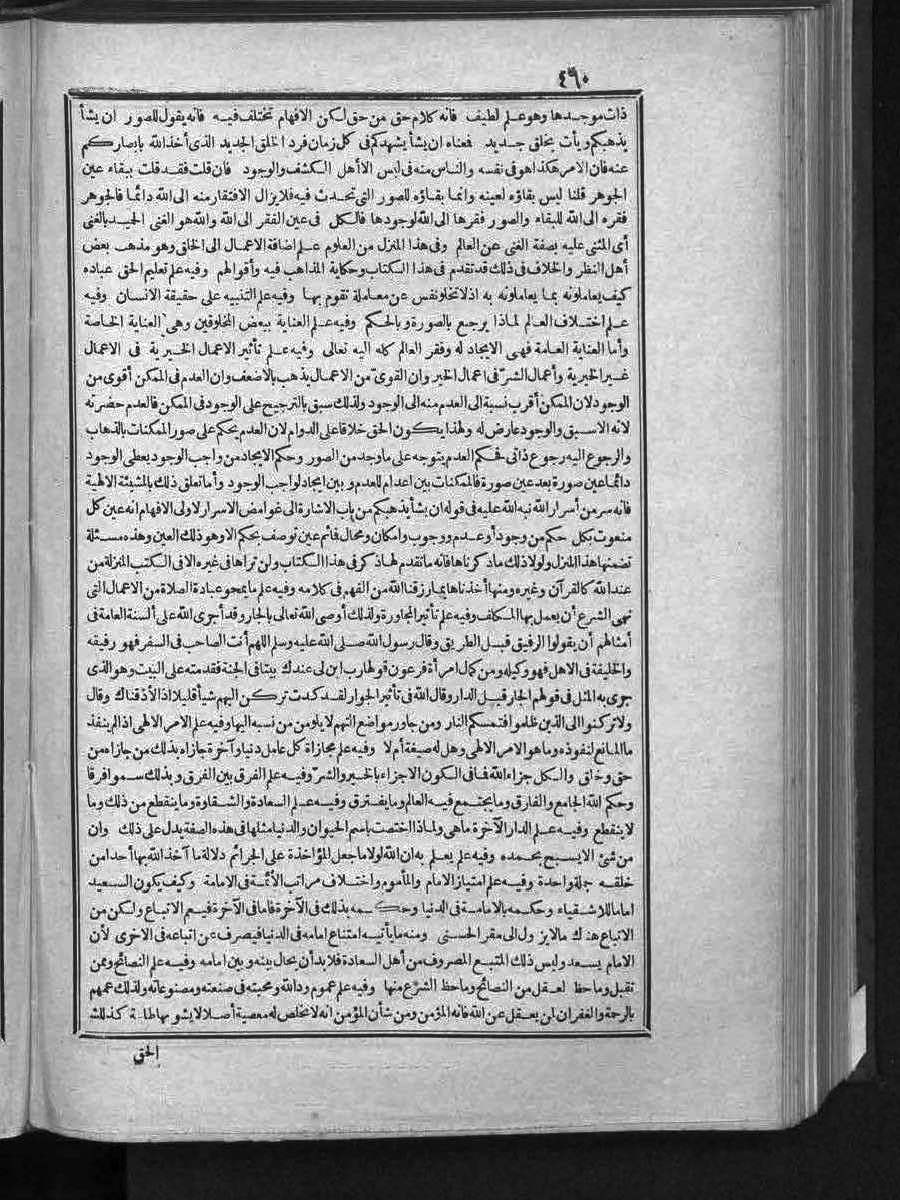 ٤٦٠
ذات موجدها وهو علم لطيف فانه كلام حق من حق لكن الافهام تختلف فيه فانه يقول للصور ان يشأ
يذهبكم ويأت بخلق جديد فمعناه ان يشأ يشهدكم في كل زمان فرد الخلق الجديد الذي أخذ الله بابصاركم
عنه فان الامر هكذا هو في نفسه والناس منه في لبس الا أهل الكشف والوجود فان قلت فقد قلت ببقاء عين
الجوهر قلنا ليس بقاؤه لعينه وانما بقاؤه للصور التي تحدث فيه فلا يزال الافتقار منه الى الله دائما فالجوهر
فقره الى الله للبقاء والصور فقرها الى الله لوجودها فالكل في عين الفقر الى الله والله هو الغني الحميد بالغنى
أي المثنى عليه بصفة الغنى عن العالم وفي هذا المنزل من العلوم علم اضافة الاعمال الى الخلق وهو مذهب بعض
أهل النظر والخلاف في ذلك قد تقدم في هذا الكتاب وحكاية المذاهب فيه وأقوالهم وفيه علم تعليم الحق عباده
كيف يعاملونه بما يعاملونه به اذ لا تخلو نفس عن معاملة تقوم بها وفيه علم التنبيه على حقيقة الانسان وفيه
علم اختلاف العالم لماذا يرجع بالصورة وبالحكم وفيه علم العناية ببعض المخلوقين وهي العناية الخاصة
وأما العناية العامة فهي الايجاد له وفقر العالم كله اليه تعالى وفيه علم تأثير الاعمال الخيرية في الاعمال
غير الخيرية وأعمال الشر في اعمال الخير وان القوي من الاعمال يذهب بالاضعف وان العدم في الممكن أقوى من
الوجود لان الممكن أقرب نسبة الى العدم منه الى الوجود ولذلك سبق بالترجيح على الوجود في الممكن فالعدم حضرته
لانه الاسبق والوجود عارض له ولهذا يكون الحق خلاقا على الدوام لان العدم يحكم على صور الممكنات بالذهاب
والرجوع اليه رجوع ذاتي فحكم العدم يتوجه على ما وجد من الصور وحكم الايجاد من واجب الوجود يعطي الوجود
دائما عين صورة بعد عين صورة فالممكنات بين اعدام للعدم وبين ايجاد لواجب الوجود وأما تعلق ذلك بالمشيئة الالهية
فانه سر من أسرار الله نبه الله عليه في قوله ان يشأ يذهبكم من باب الاشارة الى غوامض الاسرار لاولى الافهام انه عين كل
منعوت بكل حكم من وجود أو عدم ووجوب وامكان ومحال فما ثم عين توصف بحكم الا وهو ذلك العين وهذه مسئلة
تضمنها هذا المنزل ولولا ذلك ما ذكرناها فانه ما تقدم لها ذكر في هذا الكتاب ولن تراها في غيره الا في الكتب المنزلة من
عند الله كالقرآن وغيره ومنها أخذناها بما رزقنا الله من الفهم في كلامه وفيه علم ما يمحو عبادة الصلاة من الاعمال التي
نهى الشرع أن يعمل بها المكلف وفيه علم تأثير المجاورة ولذلك أوصى الله تعالى بالجار وقد أجرى الله على ألسنة العامة في
أمثالهم أن يقولوا الرفيق قبل الطريق وقال رسول الله صلى الله عليه وسلم اللهم أنت الصاحب في السفر فهو رفيقه
والخليفة في الاهل فهو وكيله ومن كمال امرأة فرعون قولها رب ابن لي عندك بيتا في الجنة فقدمته على البيت وهو الذي
جرى به المثل في قولهم الجار قبل الدار وقال الله في تأثير الجوار لقد كدت تركن اليهم شيأ قليلا اذا لأذقناك وقال
ولا تركنوا الى الذين ظلموا فتمسكم النار ومن جاور مواضع التهم لا يلومن من نسبه اليها وفيه علم الامر الالهي اذا لم ينفذ
ما المانع لنفوذه وما هو الامر الالهي وهل له صيغة أم لا وفيه علم مجازاة كل عامل دنيا وآخرة جازاه بذلك من جازاه من
حق وخلق والكل جزاء الله فما في الكون الا جزاء بالخير والشر وفيه علم الفرق بين الفرق وبذلك سموا فرقا
وحكم الله الجامع والفارق وما يجتمع فيه العالم وما يفترق وفيه علم السعادة والشقاوة وما ينقطع من ذلك وما
لا ينقطع وفيه علم الدار الآخرة ما هي ولماذا اختصت باسم الحيوان والدنيا مثلها في هذه الصفة يدل على ذلك وان
من شئ الا يسبح بحمده وفيه علم يعلم به ان الله لولا ما جعل المؤاخذة على الجرائم دلالة ما آخذ الله بها أحدا من
خلقه جملة واحدة وفيه علم امتياز الامام والمأموم واختلاف مراتب الأئمة في الامامة وكيف يكون السعيد
اماما للاشقياء وحكمه بالامامة في الدنيا وحكمه بذلك في الآخرة فاما في الآخرة فيعم الاتباع ولكن من
الاتباع هناك ما لا يزول الى مقر الحسنى ومنه ما يأتيه امتناع امامه في الدنيا فيصرف عن اتباعه في الاخرى لأن
الامام يسعد وليس ذلك المتبع المصروف من أهل السعادة فلا بد أن يحال بينه وبين امامه وفيه علم النصائح وممن
تقبل وما حظ العقل من النصائح وما حظ الشرع منها وفيه علم عموم ود الله ومحبته في صنعته ومصنوعاته ولذلك عمهم
بالرحمة والغفران لمن يعقل عن الله فانه المؤمن ومن شأن المؤمن انه لا تخلص له معصية أصلا لا يشوبها طاعة كذلك
الحق